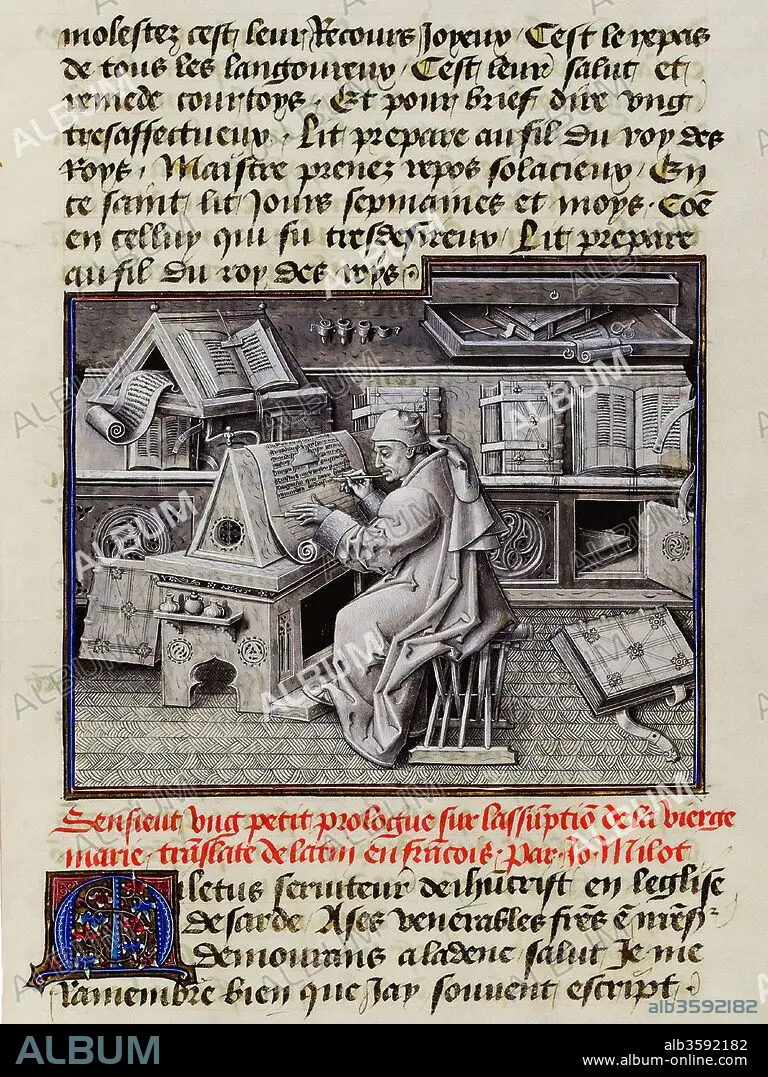 molestez cest leur Recours Joyeux Cest le repas
de tous les langoureux Cest leur salut et
remede courtoys Et pour brief dire ung
tresaffectueux Lit prepare au fil du roy des
Roys Maistre prenez repos solacieux En
ce saint lit Jours sepmaines et moys Coe͂
en celluy qui fu tresdesireux Lit prepare
au fil du roy des roys
Sensieut ung petit prologue sur lassu͂ptio͂ de la vierge
marie translate de latin en francois par Jo Milot
Miletus seruiteur de ihu͂crist en leglise
de sarde A ses venerables fre͂s
demourans a ladence salut Je me
Ramembre bien que Jay souvent escript
alb3592182
ALBUM
alb3592182
www.album-online.com